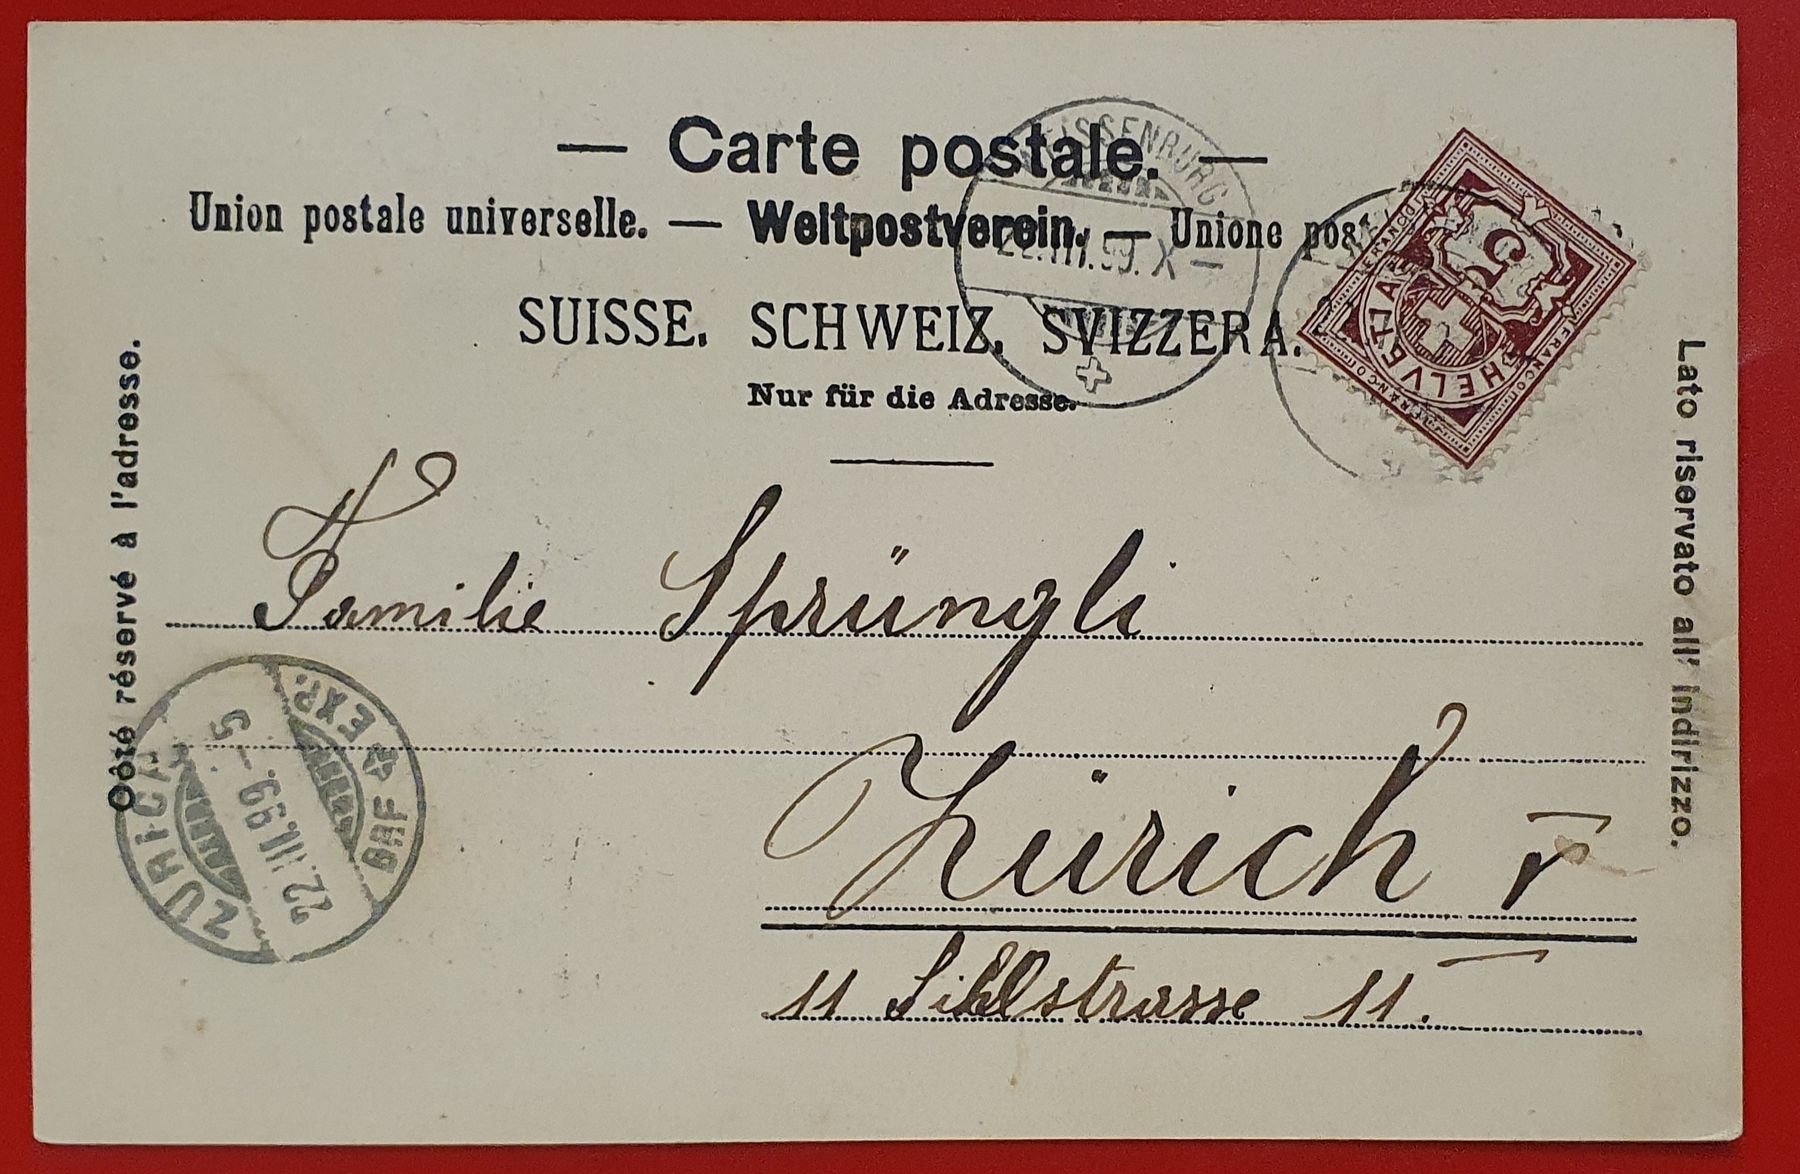 — Carte postale. —
Union postale universelle. — Weltpostverein. — Unione
SUISSE. SCHWEIZ. SVIZZERA.
Nur für die Adresse.
Côté réservé à l'adresse.
Lato riservato all' indirizzo.
WEISSENBURG
III.99. X —
5
HELVETIA
FRANCO
Familie Sprüngli
Zürich I
11 Sihlstrasse 11.
ZÜRICH
22.III.99.–5
BHF. EXP.